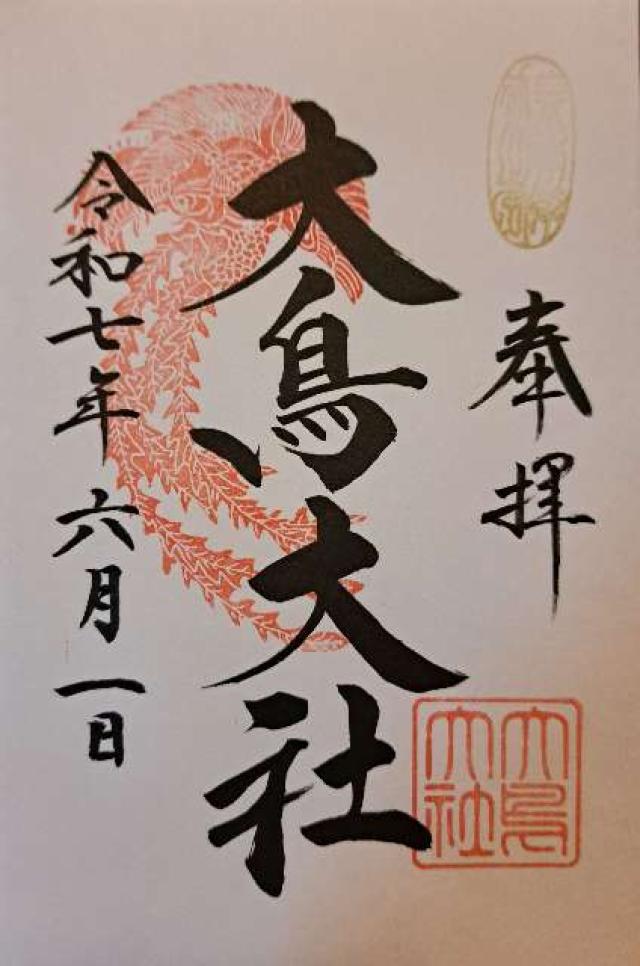 奉拝
大鳥大社
大鳥
大社
令和七年六月一日